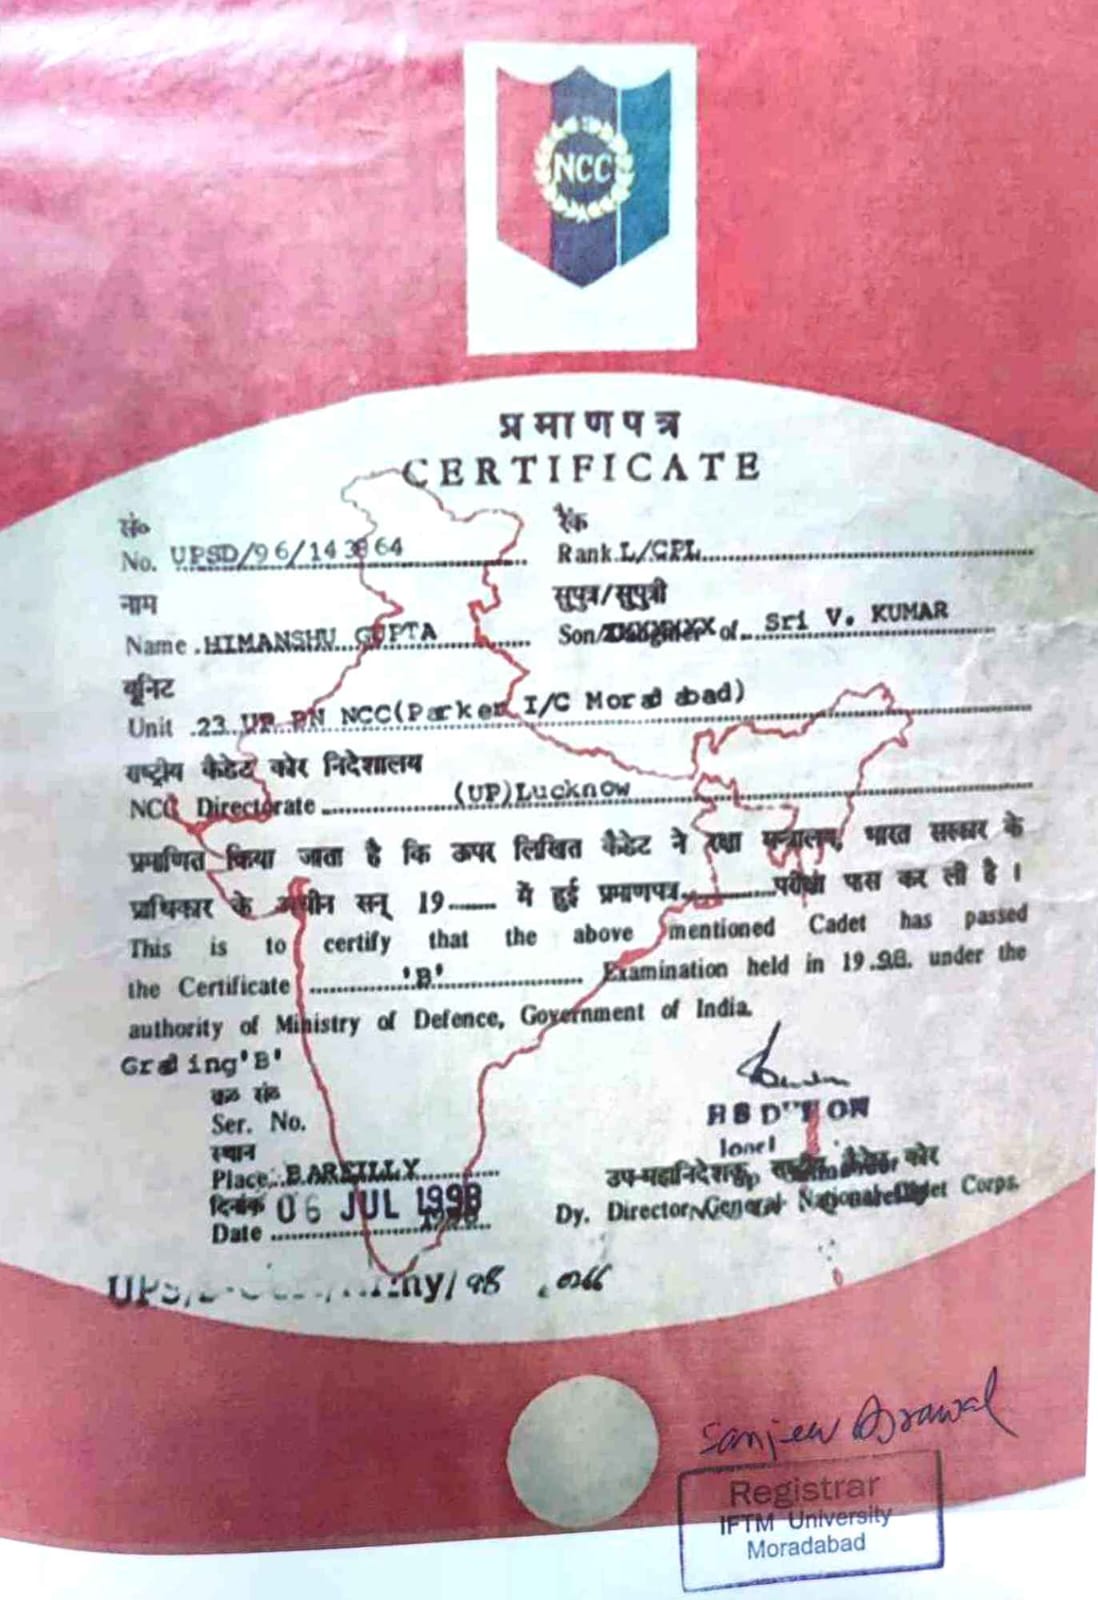 NCC
प्रमाणपत्र
CERTIFICATE
सं०
No. UPSD/96/143864
रैंक
Rank L/CPL
नाम
Name HIMANSHU GUPTA
सुपुत्र/सुपुत्री
Son/ of Sri V. KUMAR
यूनिट
Unit 23 UP BN NCC(Parker I/C Moradabad)
राष्ट्रीय कैडेट कोर निदेशालय
NCC Directorate (UP)Lucknow
प्रमाणित किया जाता है कि ऊपर लिखित कैडेट ने रक्षा मन्त्रालय, भारत सरकार के
प्राधिकार के अधीन सन् 19 में हुई प्रमाणपत्र परीक्षा पास कर ली है ।
This is to certify that the above mentioned Cadet has passed
the Certificate 'B' Examination held in 19 98. under the
authority of Ministry of Defence, Government of India.
Grading'B'
Ser. No.
स्थान
Place BAREILLY
दिनांक 06 JUL 1998
Date
उप-महानिदेशक, राष्ट्रीय कैडेट कोर
Dy. Director General National Cadet Corps.
Sanjeev Agrawal
Registrar
IFTM University
Moradabad